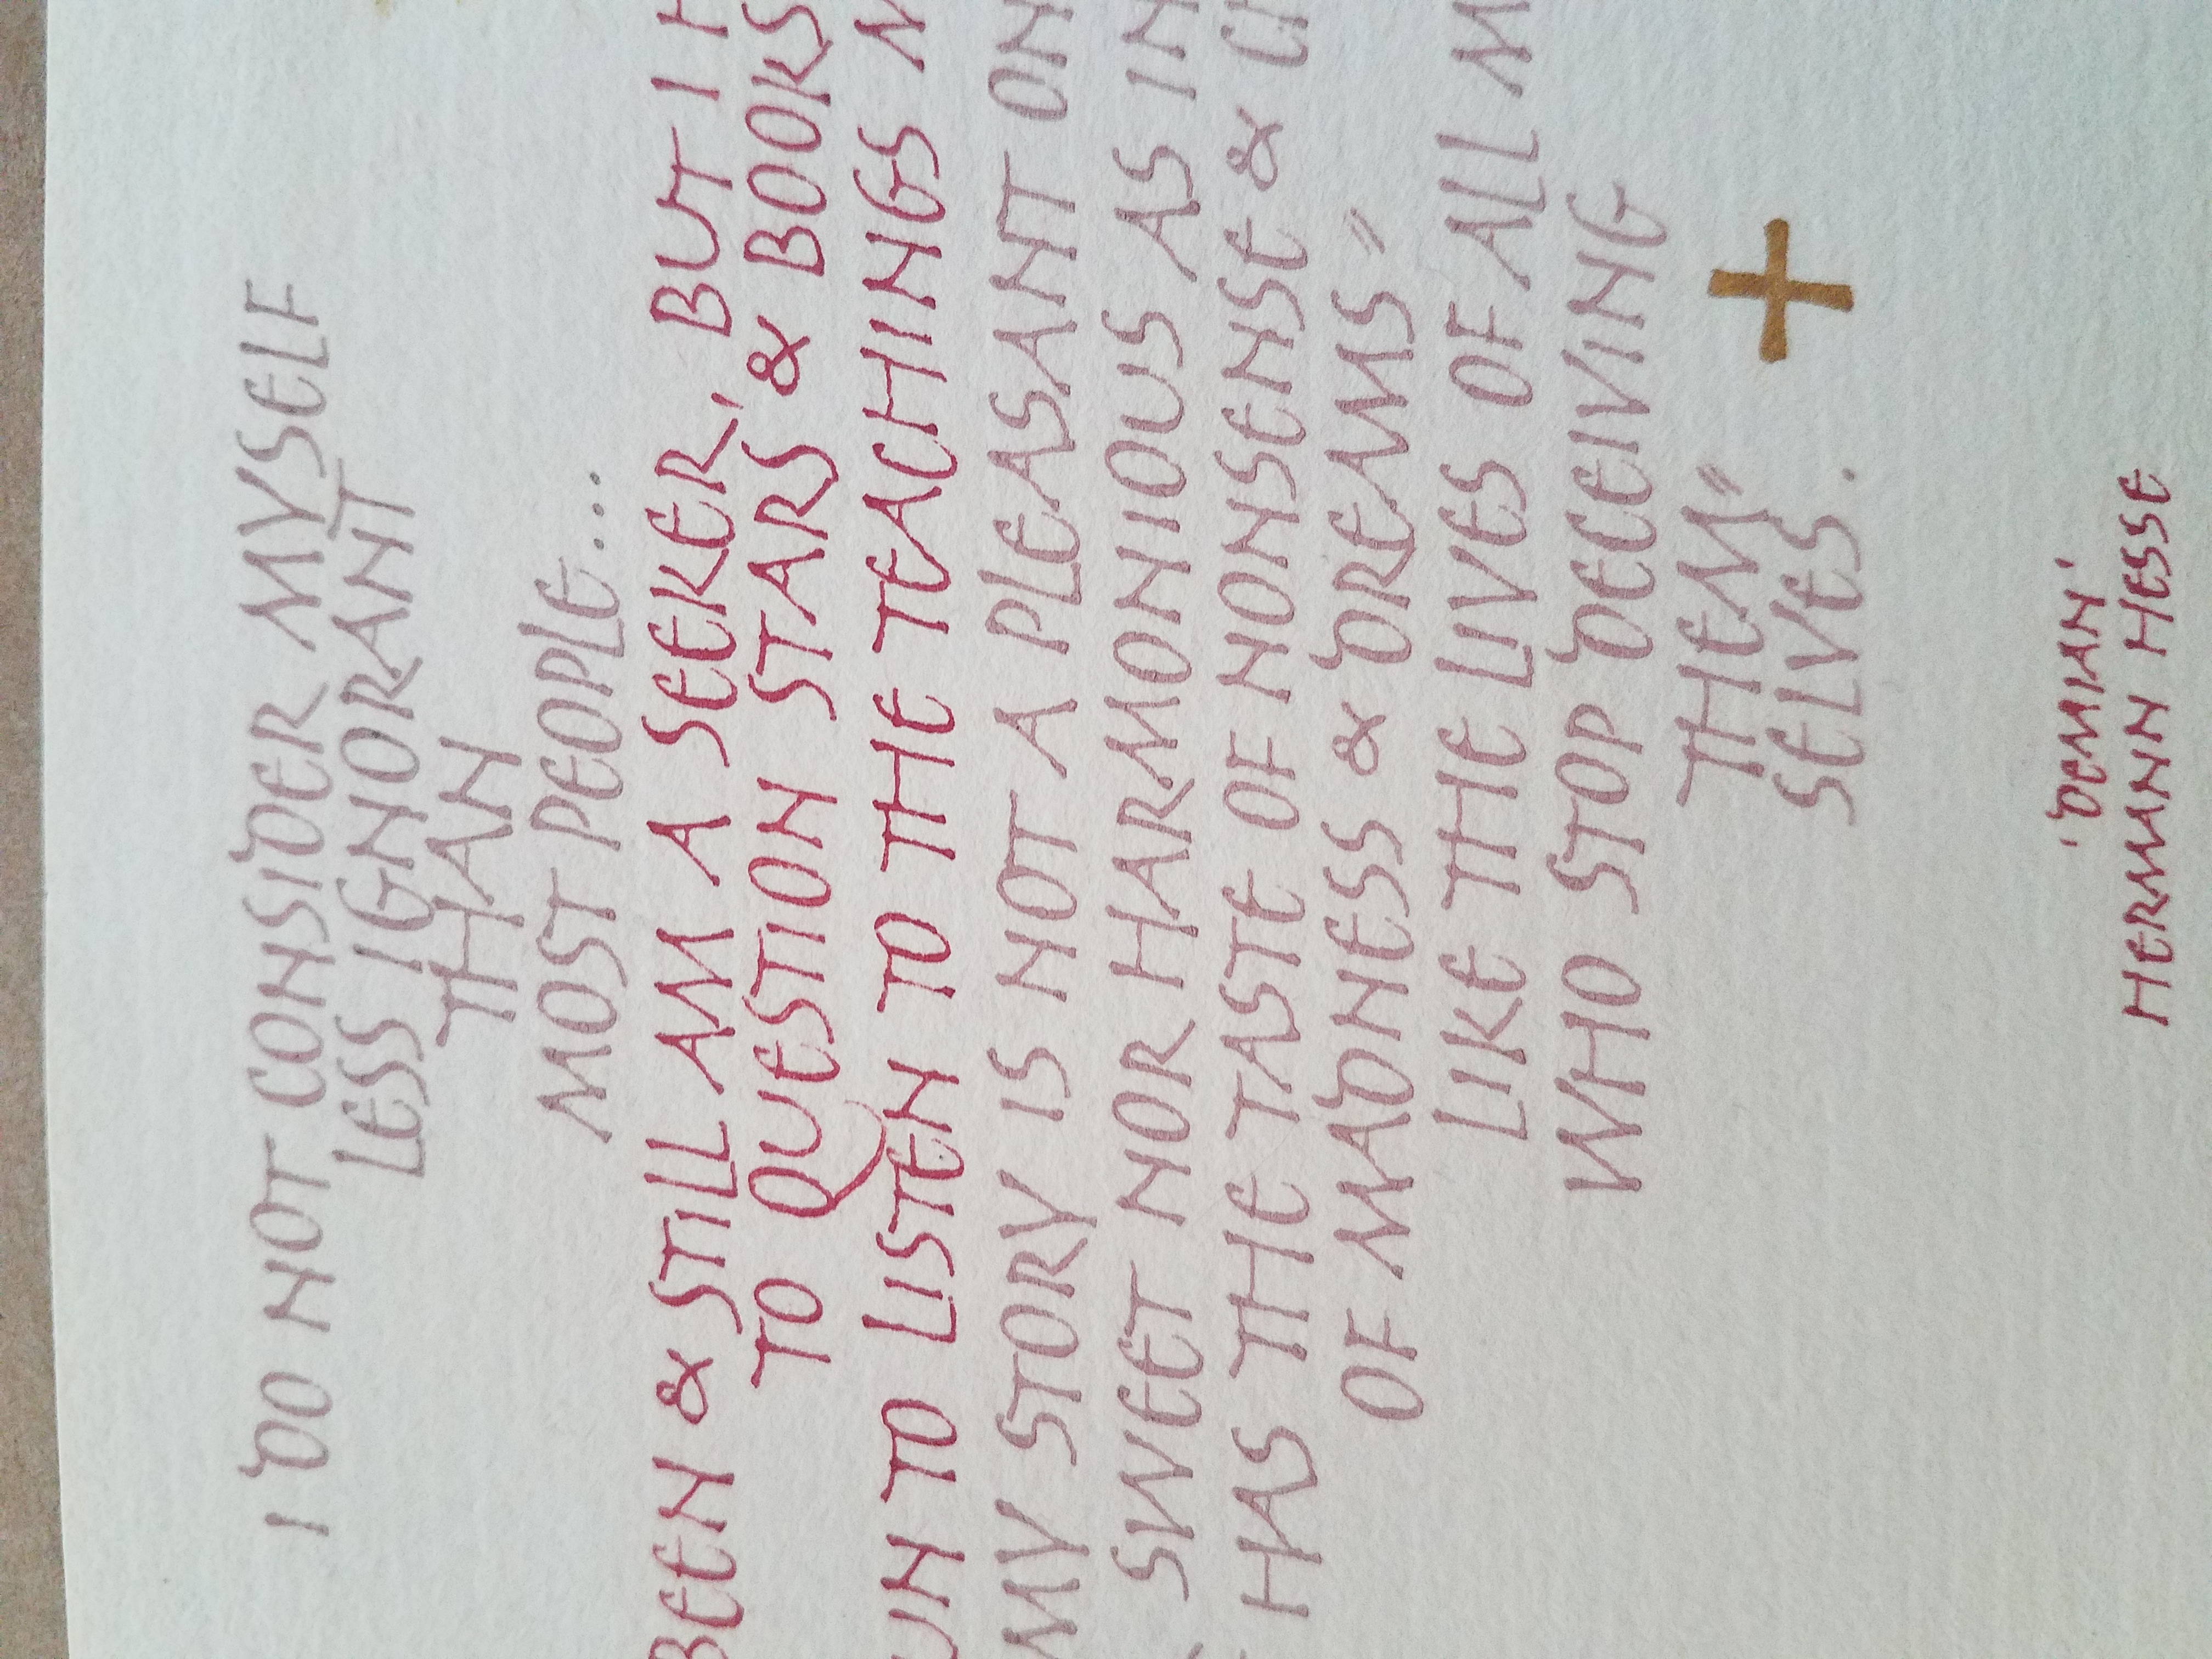 I DO NOT CONSIDER MYSELF
LESS IGNORANT
THAN
MOST PEOPLE...
BEEN & STILL AM A SEEKER, BUT I
TO QUESTION STARS & BOOKS
TO LISTEN TO THE TEACHINGS
MY STORY IS NOT A PLEASANT
SWEET NOR HARMONIOUS AS
HAS THE TASTE OF NONSENSE &
OF MADNESS & DREAMS=
LIKE THE LIVES OF ALL
WHO STOP DECEIVING
THEM=
SELVES.
'DEMIAN'
HERMANN HESSE